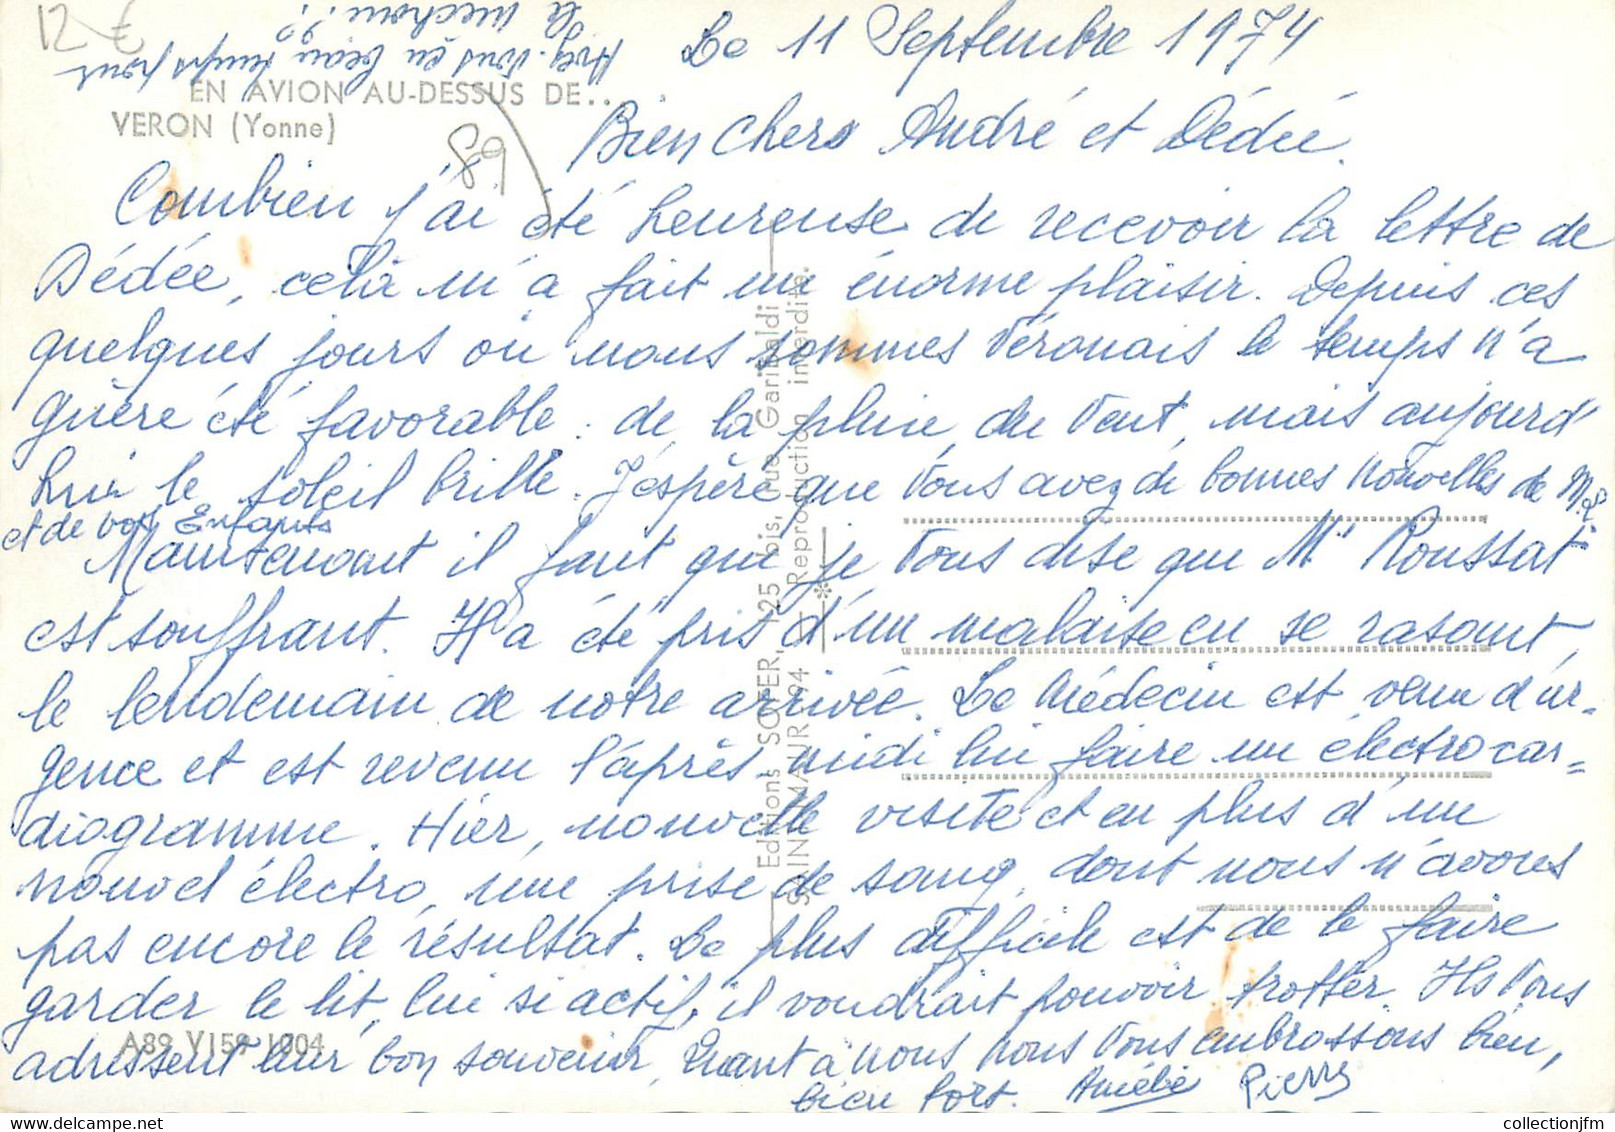 12 €
Avez-vous eu beau temps pour
le mechoui ??
Le 11 Septembre 1974
EN AVION AU-DESSUS DE...
VERON (Yonne)
89
Bien chers André et Dédée.
Combien j'ai été heureuse de recevoir la lettre de
Dédée, celà m'a fait un énorme plaisir. Depuis ces
quelques jours où nous sommes Véronais le temps n'a
guère été favorable : de la pluie, du vent, mais aujourd'
hui le soleil brille. J'espère que vous avez de bonnes nouvelles de M.L
et de vos Enfants
Maintenant il faut que je vous dise que Mr Roussat
est souffrant. Il a été pris d'un malaise en se rasant,
le lendemain de notre arrivée. Le Médecin est venu d'ur-
gence et est revenu l'après-midi lui faire un électrocar-
diogramme. Hier, nouvelle visite et en plus d'un
nouvel électro, une prise de sang, dont nous n'avons
pas encore le résultat. Le plus difficile est de le faire
garder le lit, lui si actif, il voudrait pouvoir trotter. Ils vous
adressent leur bon souvenir. Quant à nous nous vous embrassons bien,
bien fort. Amélie Pierre
Editions SOFER, 125 bis, rue Garibaldi
SAINT-MAUR (94) — Reproduction interdite.
A89 V159 1004
collectionjfm